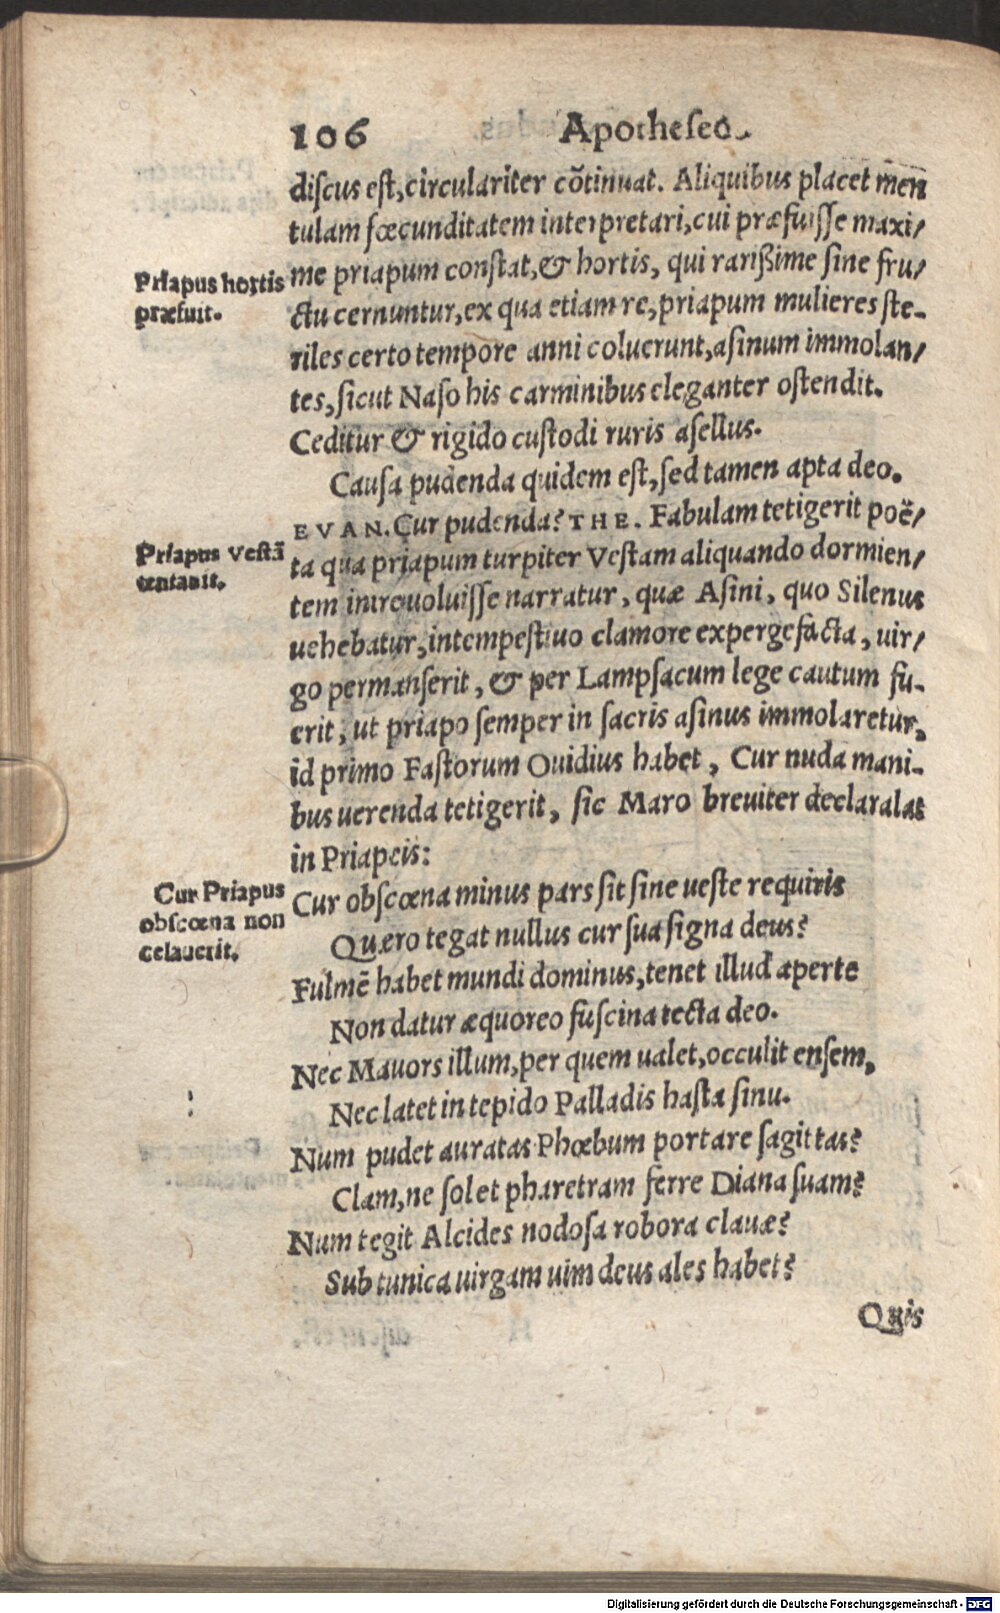 106 Apotheseō
discus est, circulariter cōtinuat. Aliquibus placet men
tulam fœcunditatem interpretari, cui præfuisse maxi/
me priapum constat, & hortis, qui rarißime sine fru/
ctu cernuntur, ex qua etiam re, priapum mulieres ste-
riles certo tempore anni coluerunt, asinum immolan/
tes, sicut Naso his carminibus eleganter ostendit.
Ceditur & rigido custodi ruris asellus.
Causa pudenda quidem est, sed tamen apta deo.
EVAN. Cur pudenda? THE. Fabulam tetigerit poë/
ta qua priapum turpiter Vestam aliquando dormien/
tem introuoluisse narratur, quæ Asini, quo Silenus
uehebatur, intempestiuo clamore expergefacta, uir/
go permanserit, & per Lampsacum lege cautum fu-
erit, ut priapo semper in sacris asinus immolaretur,
id primo Fastorum Ouidius habet, Cur nuda mani-
bus uerenda tetigerit, sic Maro breuiter declaralat
in Priapeis:
Cur obscœna minus pars sit sine ueste requiris
Quæro tegat nullus cur sua signa deus?
Fulmē habet mundi dominus, tenet illud aperte
Non datur æquoreo fuscina tecta deo.
Nec Mauors illum, per quem ualet, occulit ensem,
Nec latet in tepido Palladis hasta sinu.
Num pudet auratas Phœbum portare sagittas?
Clam, ne solet pharetram ferre Diana suam?
Num tegit Alcides nodosa robora clauæ?
Sub tunica uirgam uim deus ales habet?
Quis
Priapus hortis
præfuit.
Priapus Vestā
tentauit.
Cur Priapus
obscœna non
celauerit.
Digitalisierung gefördert durch die Deutsche Forschungsgemeinschaft - DFG